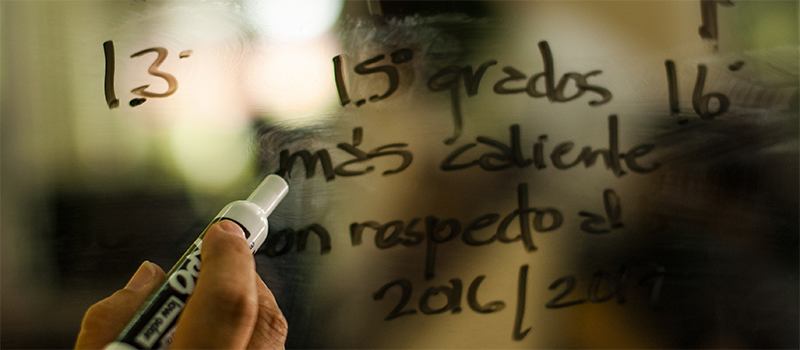 1.3° 1.5° grados 1.6°
más caliente
con respecto al
2016/201
low odor